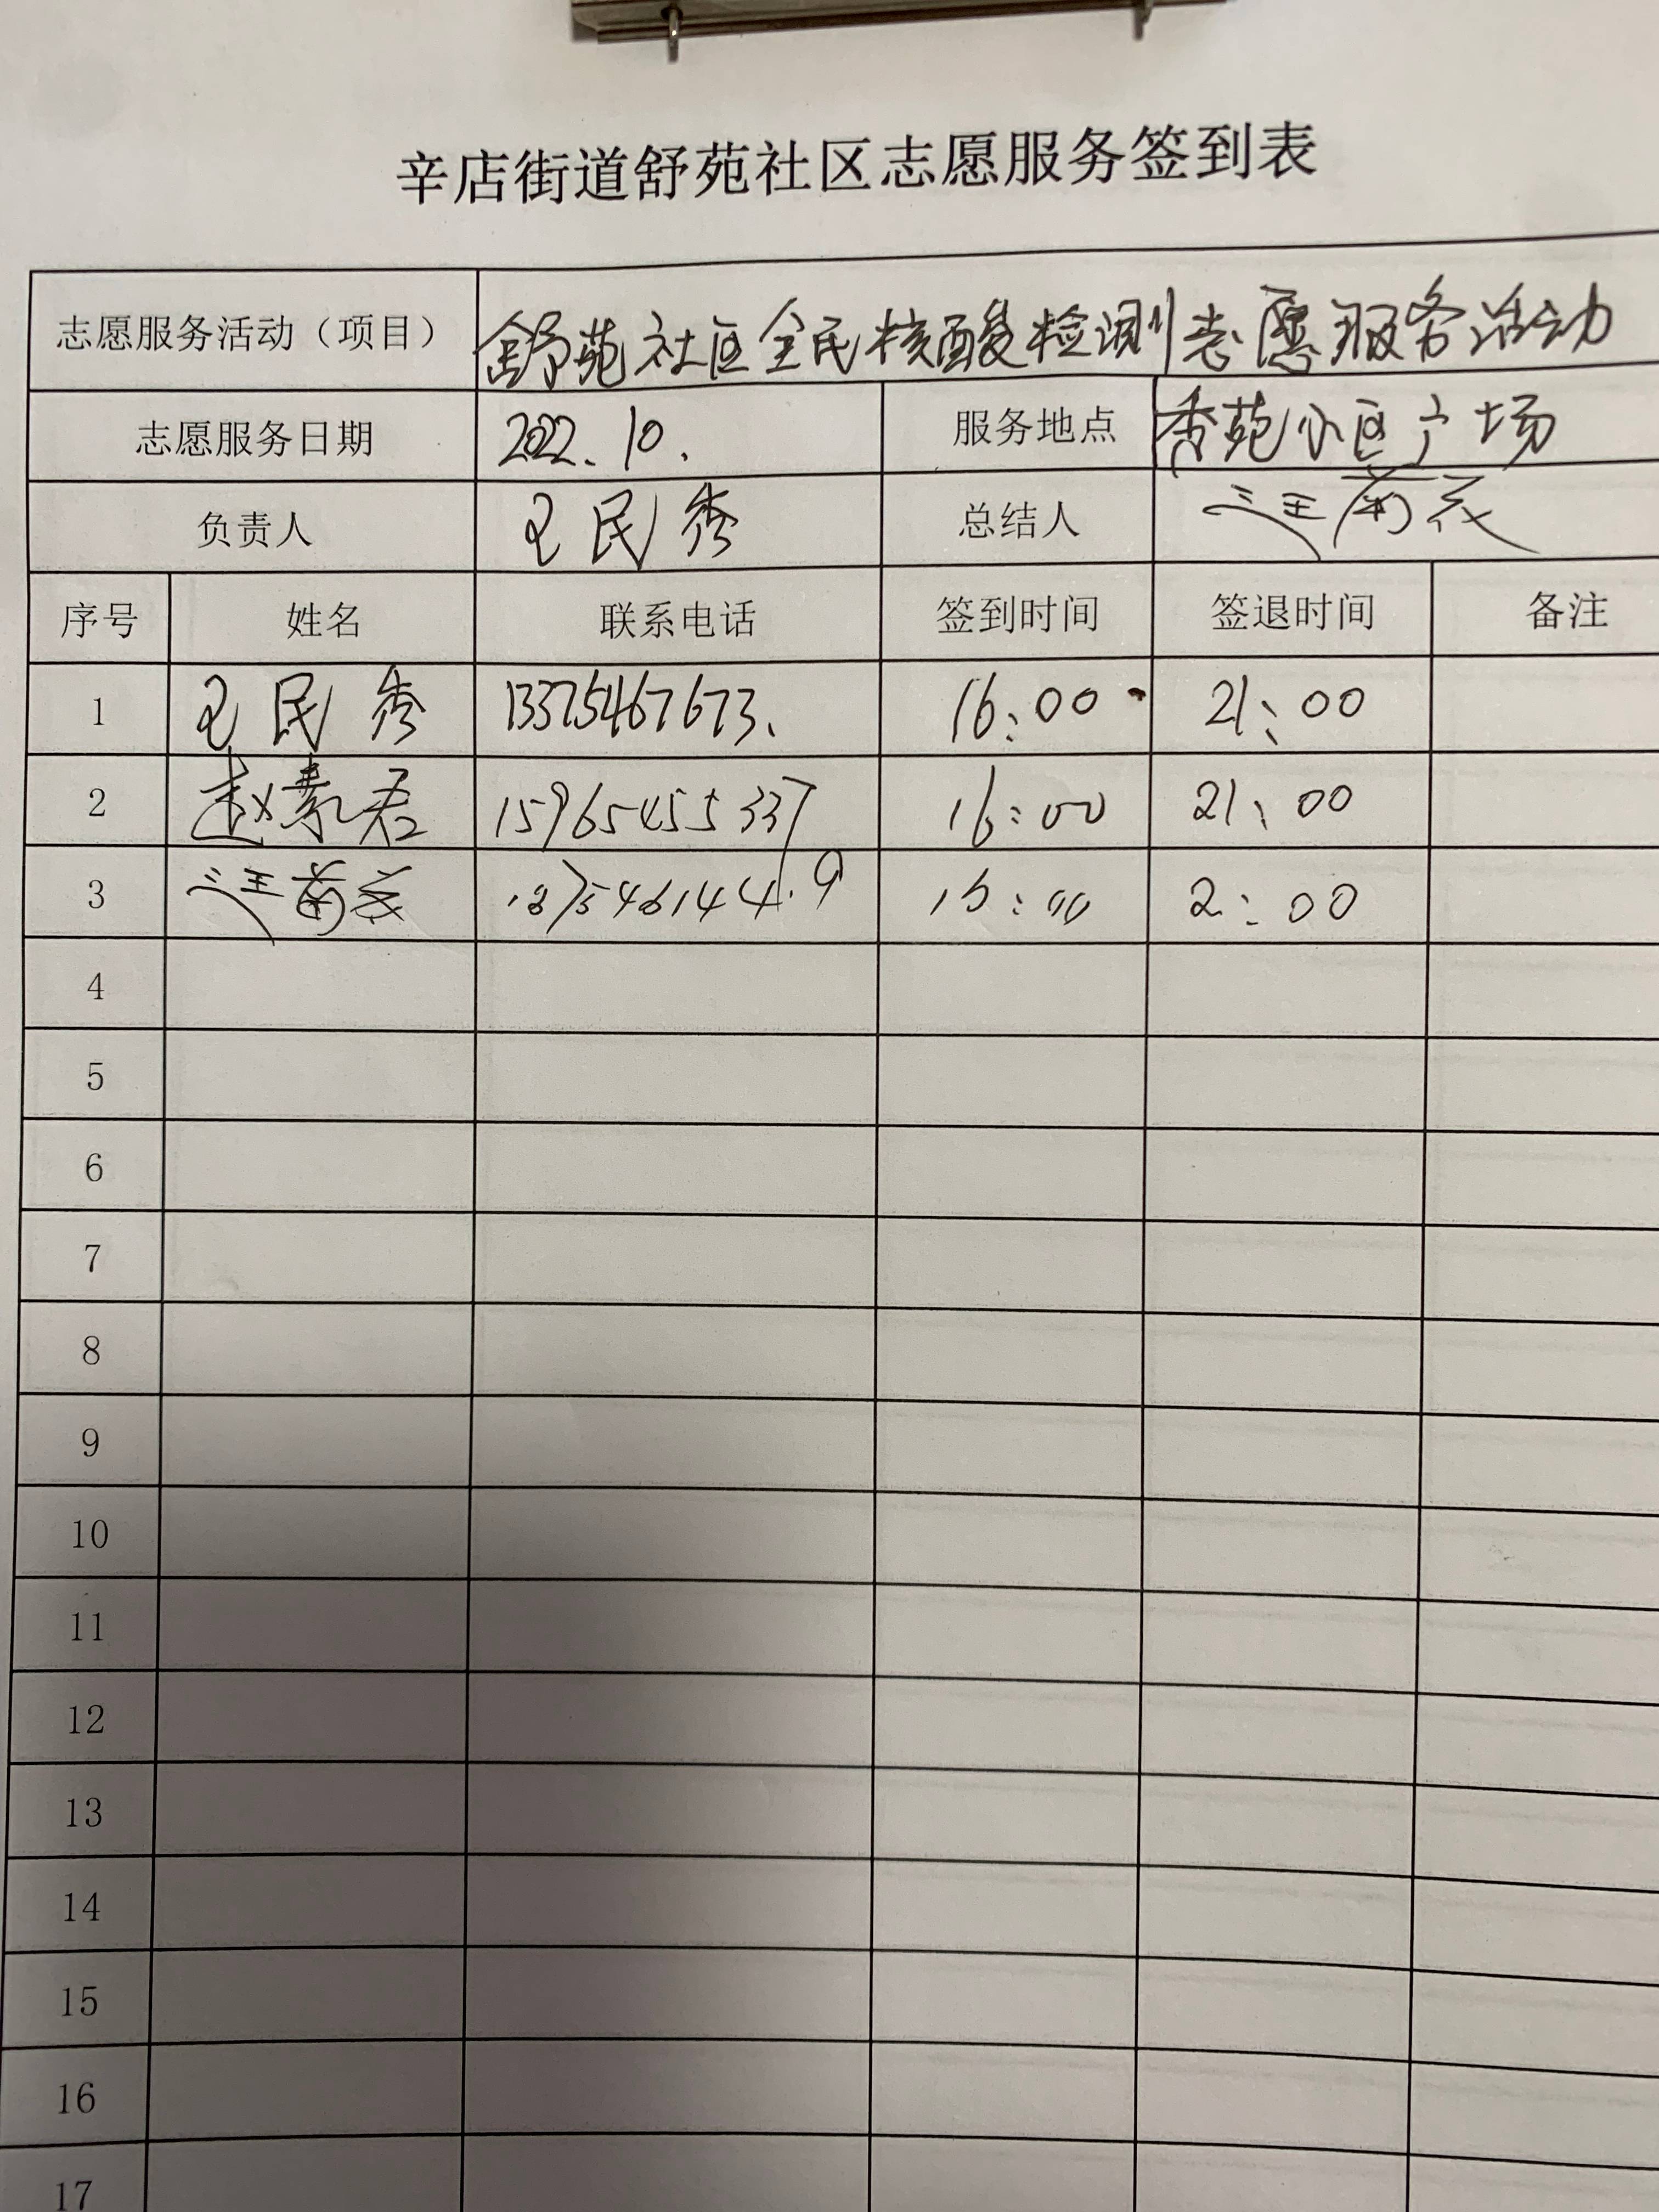 辛店街道舒苑社区志愿服务签到表
志愿服务活动（项目） 舒苑社区全民核酸检测志愿服务活动
志愿服务日期 2022.10. 服务地点 秀苑小区广场
负责人 王民秀 总结人
序号 姓名 联系电话 签到时间 签退时间 备注
1 王民秀 13375467673. 16:00 21:00
2 赵素君 15965455337 16:00 21:00
3 2:00
4
5
6
7
8
9
10
11
12
13
14
15
16
17